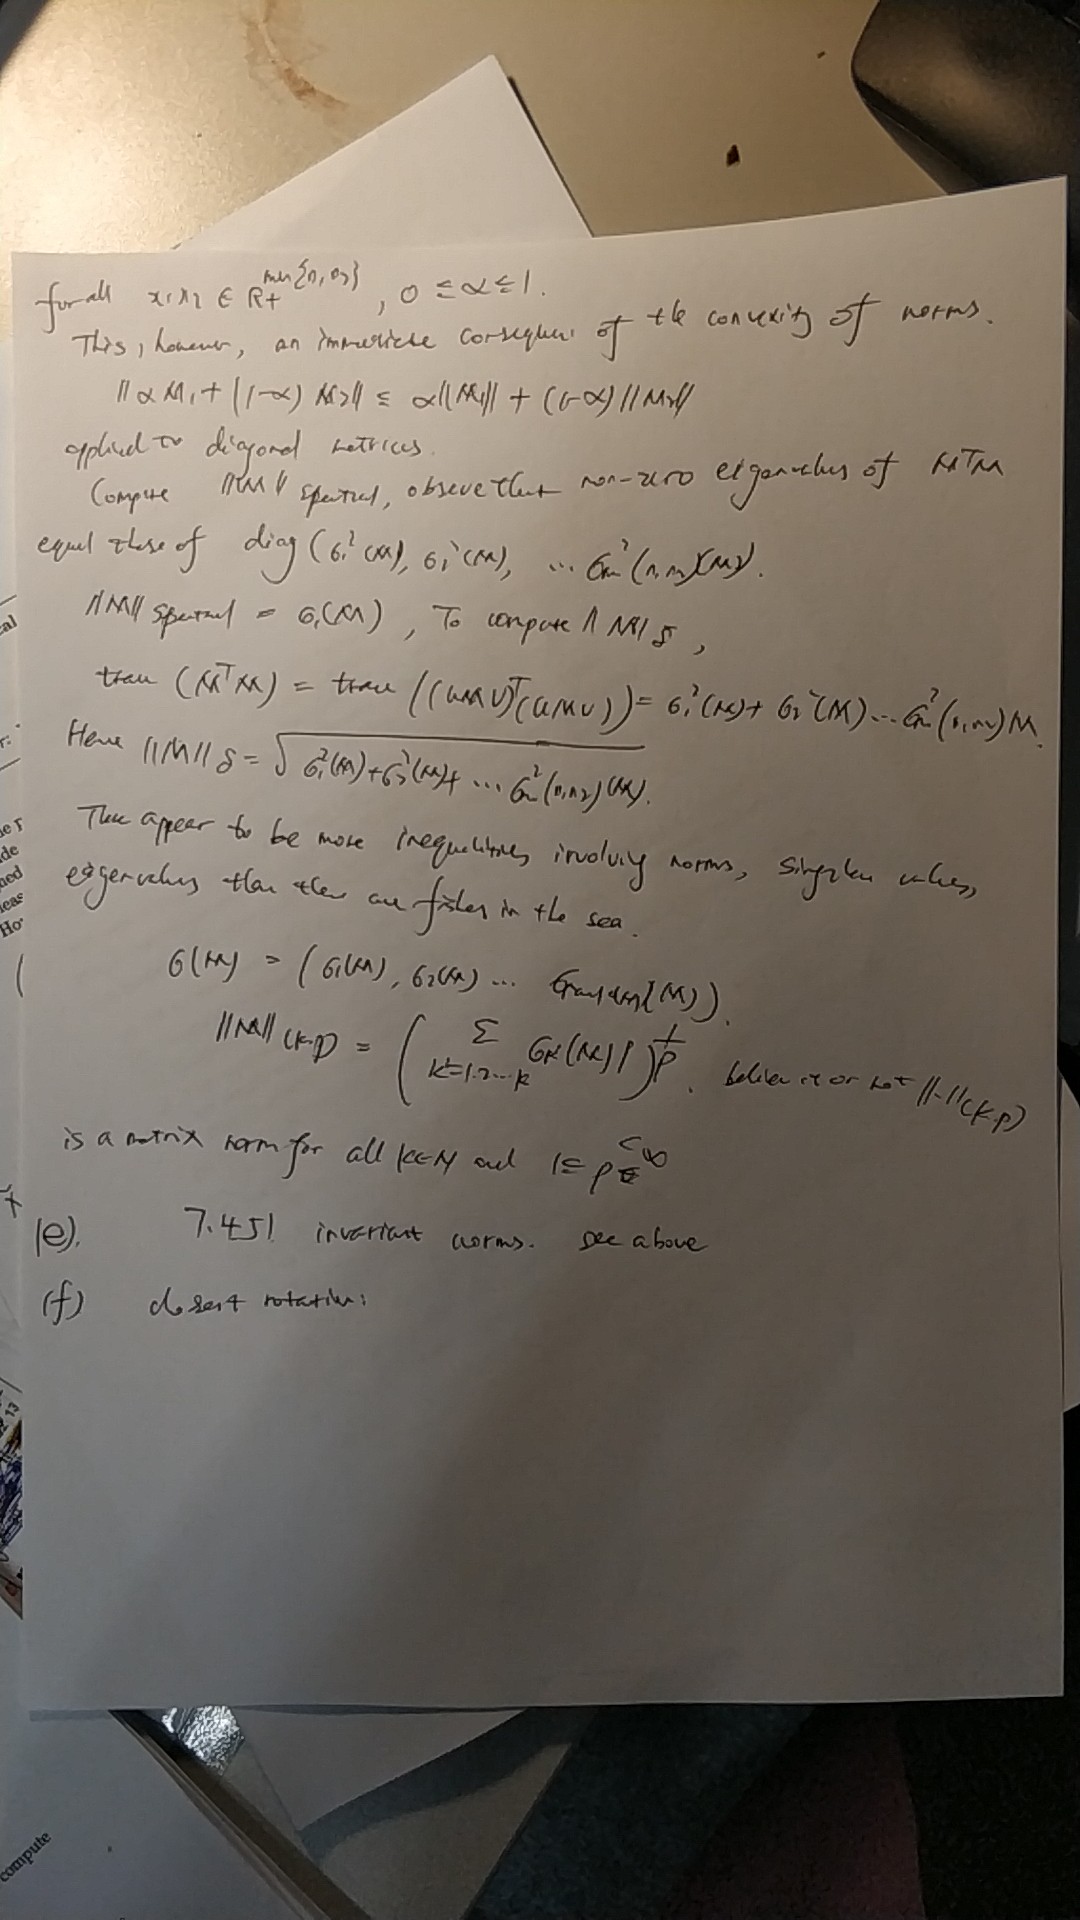 for all x₁, x₂ ∈ R₊^min{n₁,n₂}, 0 ≤ α ≤ 1.
This, however, an immediate consequence of the convexity of norms.
||α M₁ + (1-α) M₂|| ≤ α||M₁|| + (1-α) ||M₂||
applied to diagonal matrices.
Compute ||M|| spectral, observe that non-zero eigenvalues of MᵀM
equal those of diag (σ₁²(M), σ₂²(M), ... σm²(n₁,n₂)(M)).
||M|| spectral = σ₁(M), To compute ||M|| F,
trace (MᵀM) = trace ((UMV)ᵀ(UMV)) = σ₁²(M) + σ₂²(M) ... σm²(n₁,n₂) M.
Hence ||M|| F = √σ₁²(M)+σ₂²(M)+ ... σm²(n₁,n₂)(M).
There appear to be more inequalities involving norms, singular values,
eigenvalues than there are fishes in the sea.
σ(M) = (σ₁(M), σ₂(M) ... (M)).
||M|| (k,p) = (Σ k'=1,2...k σk'(M)p)^1/p. believe it or not ||·||(k,p)
is a matrix norm for all k∈N and 1 ≤ p < ∞
(e). 7.451 invariant norms. see above
(f) closest rotation:
cal
r:
de
ned
leas
Ho
13
compute